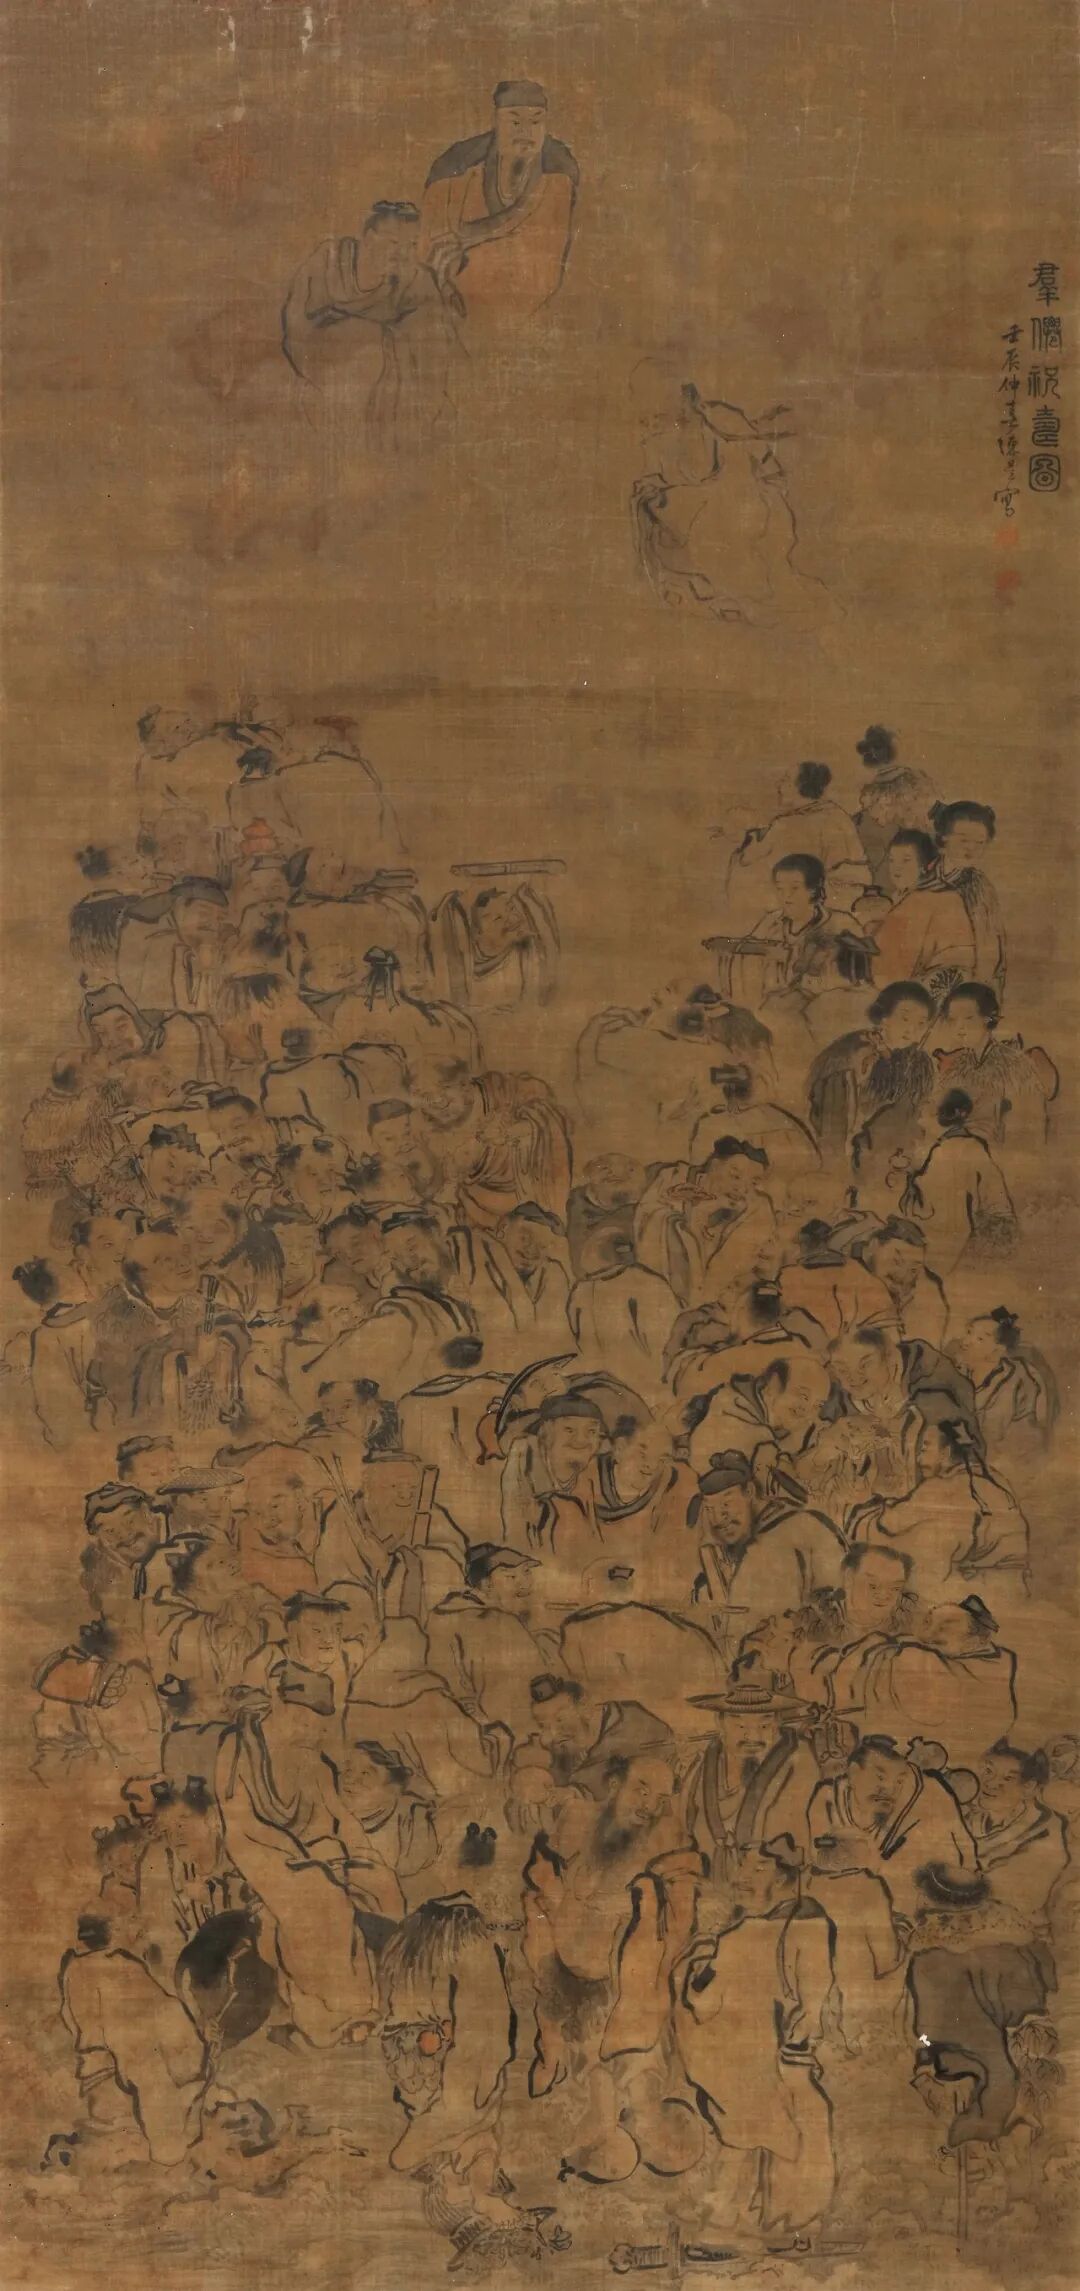 羣僊祝壽圖
壬辰仲春陳寫